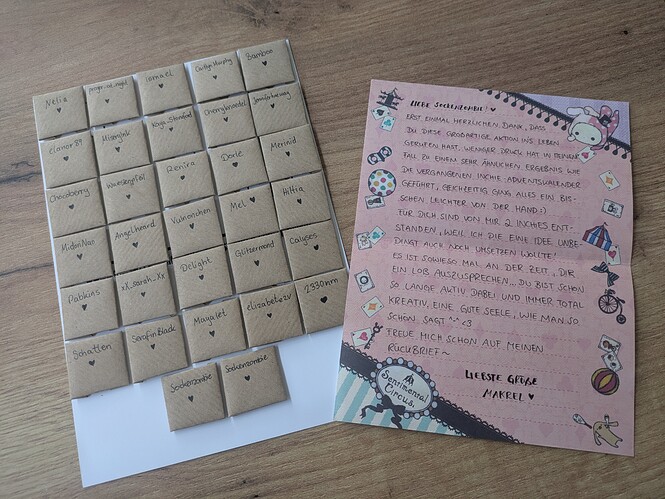 Nelia
Ismael
Caitlyn Murphy
Bamboo
Elanor89
Kaya Stannford
Cherrybramdel
Chocoberry
Renira
Dorle
Merinid
MidoriNari
Angelheard
Mel
Hittia
Pabkins
xX_sarah_Xx
Delight
Glitzermond
Calyses
Schatten
SerafinBlack
Mayalet
elizabetezv
2330nm
Sockenzombie
Sockenzombie
LIEBE SOCKENZOMBIE!
ERST EINMAL HERZLICHEN DANK, DASS
DU DIESE GROSSARTIGE AKTION INS LEBEN
GERUFEN HAST. WENIGER DRUCK HAT IN MEINEM
FALL ZU EINEM SEHR ÄHNLICHEN ERGEBNIS WIE
DIE VERGANGENEN INCHIE-ADVENTSKALENDER
GEFÜHRT, GLEICHZEITIG GING ALLES EIN BIS-
SCHEN LEICHTER VON DER HAND :)
FÜR DICH SIND VON MIR 2 INCHES ENT-
STANDEN, WEIL ICH DIE EINE IDEE UNBE-
DINGT AUCH NOCH UMSETZEN WOLLTE!
ES IST SOWIESO MAL AN DER ZEIT, DIR
EIN LOB AUSZUSPRECHEN... DU BIST SCHON
SO LANGE AKTIV DABEI UND IMMER TOTAL
KREATIV, EINE GUTE SEELE, WIE MAN SO
SCHÖN SAGT ^-^ <3
FREUE MICH SCHON AUF MEINEN
RÜCKBRIEF~
LIEBSTE GRÜSSE
MAKREL
Sentimental
Circus